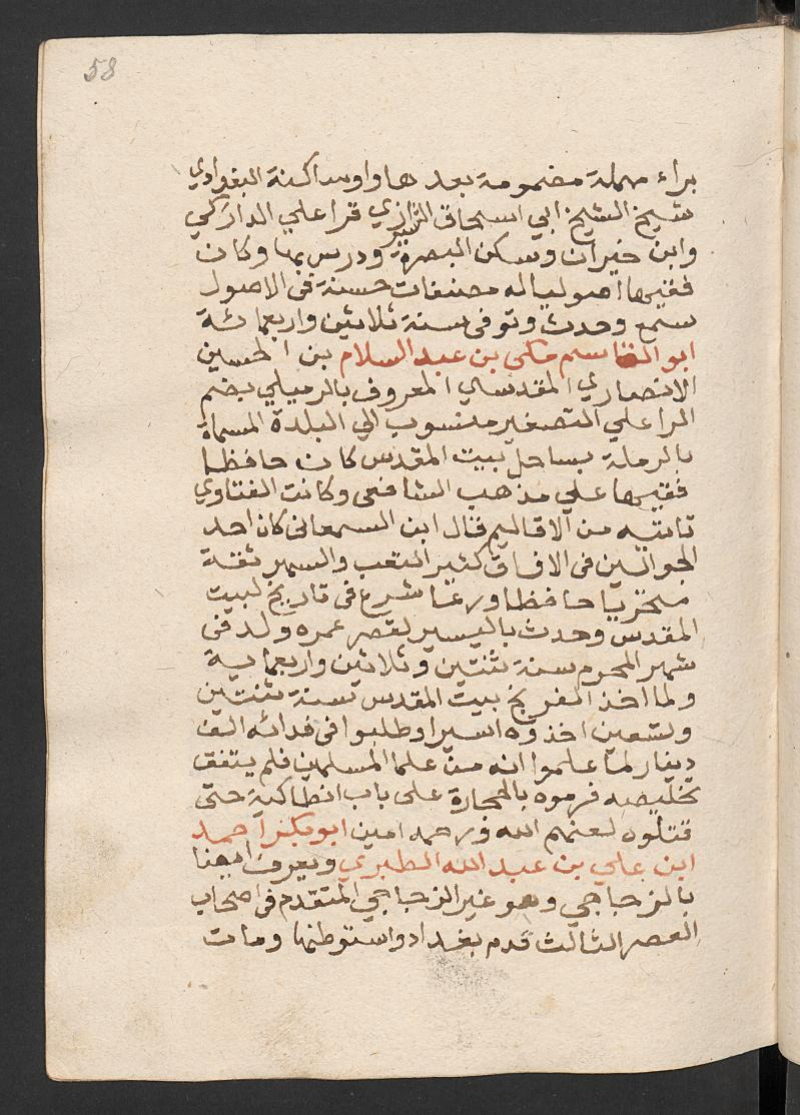 58
براء مهملة مضمومة بعدها واو ساكنة البغدادي
شيخ الشيخ ابي اسحاق الشيرازي قرا علي الداركي
وابن خيران وسكن البصرة ودرس بها وكان
فقيها اصوليا له مصنفات حسنة في الاصول
سمع وحدث وتوفى سنة ثلاثين واربعمائة
ابو القاسم مكي بن عبد السلام بن الحسين
الانصاري المقدسي المعروف بالرميلي بضم
الرا علي التصغير منسوب الي البلدة المسماة
بالرملة بساحل بيت المقدس كان حافظا
فقيها علي مذهب الشافعى وكانت الفتاوي
تاتيه من الاقاليم قال ابن السمعانى كان احد
الجوالين فى الافاق كثير التعب والسهر ثقة
متحريا حافظا ورعا شرع فى تاريخ لبيت
المقدس وحدث باليسير لقصر عمره ولد فى
شهر المحرم سنة ثنتين وثلاثين واربعماية
ولما اخذ الفرنج بيت المقدس سنة ثنتين
وتسعين اخذوه اسيرا وطلبوا فى فدائه الف
دينار لما علموا انه من علما المسلمين فلم يتفق
تخليصه فرموه بالحجارة على باب انطاكية حتى
قتلوه لعنهم الله ورحمه امين ابو بكر احمد
ابن علي بن عبد الله الطبري ويعرف ايضا
بالزجاجي وهو غير الزجاجي المتقدم فى اصحاب
العصر الثالث قدم بغداد واستوطنها ومات